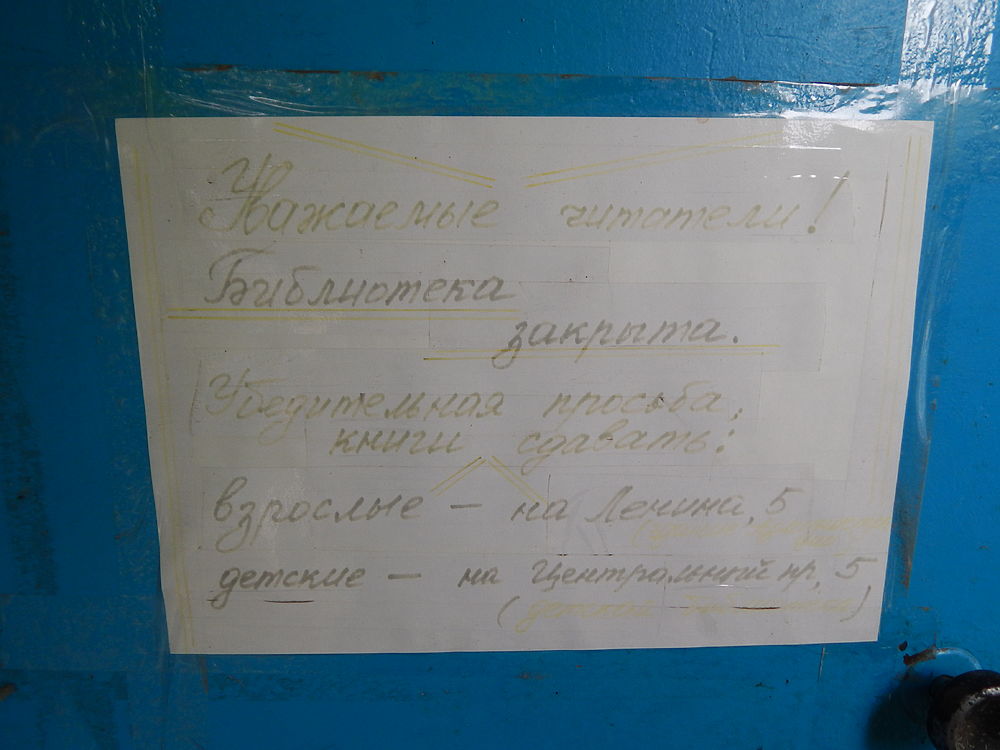 Уважаемые читатели!
Библиотека
закрыта.
Убедительная просьба,
книги сдавать:
взрослые — на Ленина, 5
детские — на Центральный пр, 5
(детская